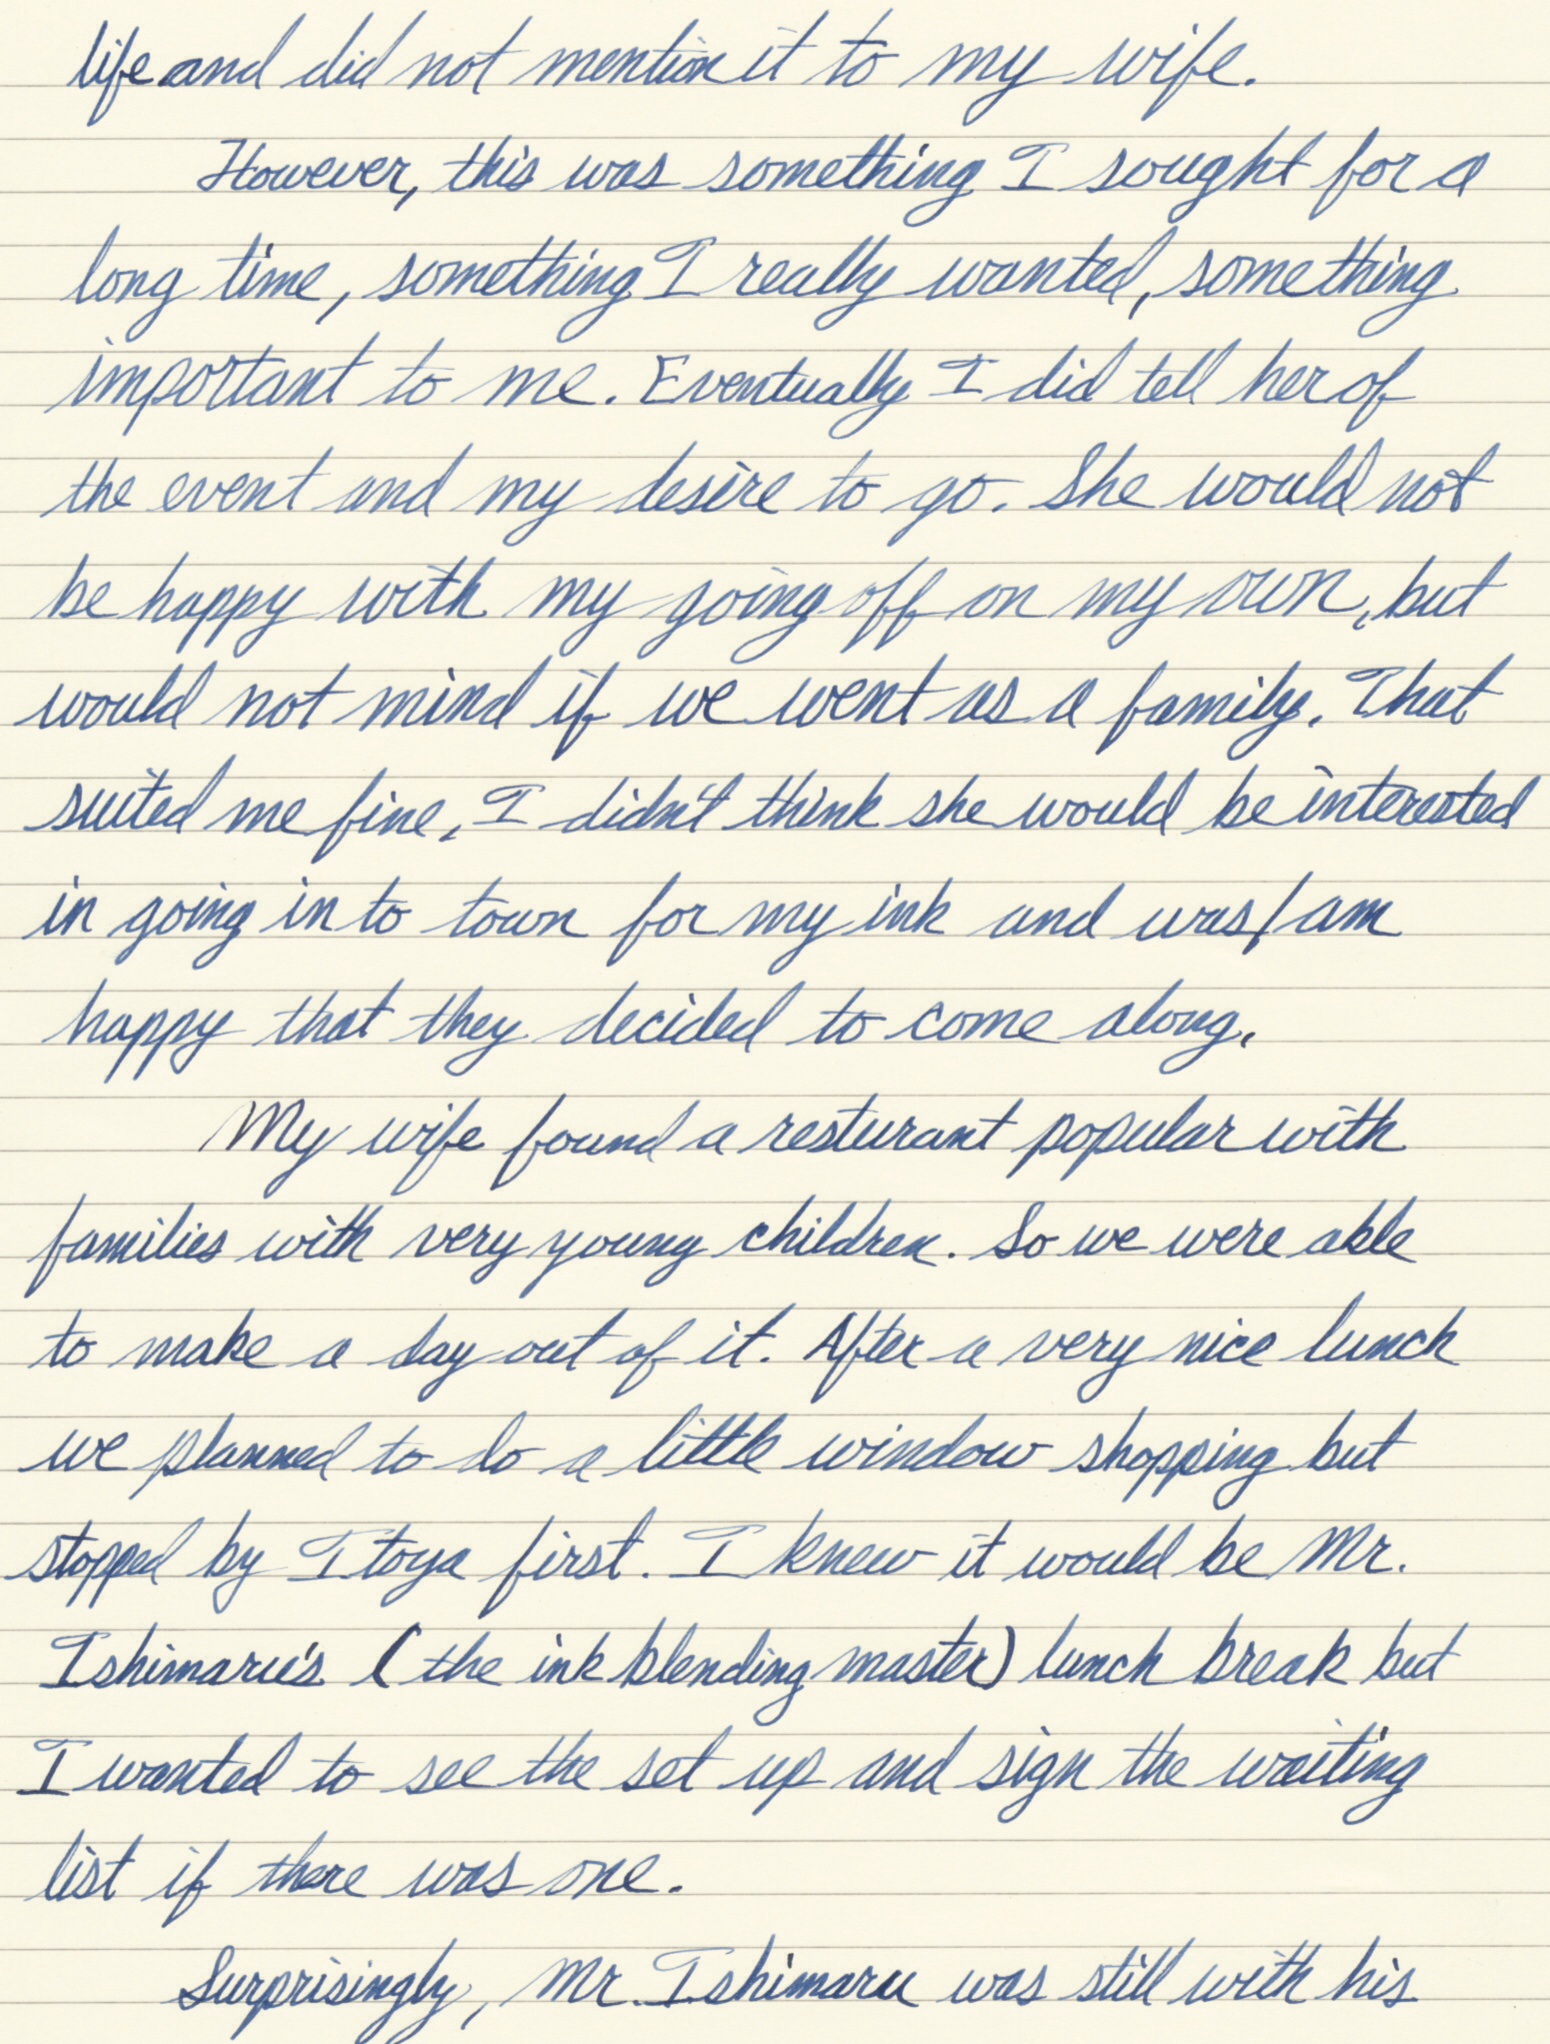 life and did not mention it to my wife.
However, this was something I sought for a
long time, something I really wanted, something
important to me. Eventually I did tell her of
the event and my desire to go. She would not
be happy with my going off on my own, but
would not mind if we went as a family. That
suited me fine, I didn't think she would be interested
in going in to town for my ink and was/am
happy that they decided to come along.
My wife found a resturant popular with
families with very young children. So we were able
to make a day out of it. After a very nice lunch
we planned to do a little window shopping but
stopped by Itoya first. I knew it would be Mr.
Ishimaru's (the ink blending master) lunch break but
I wanted to see the set up and sign the waiting
list if there was one.
Surprisingly, Mr. Ishimaru was still with his